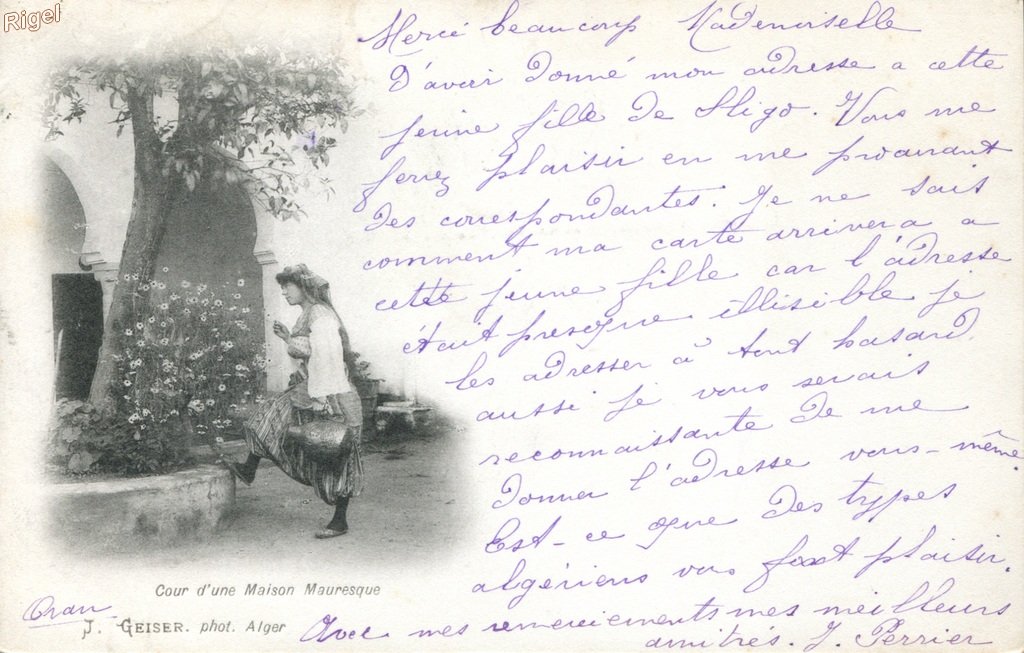 Rigel
Merci beaucoup Mademoiselle
d'avoir donné mon adresse a cette
jeune fille de Sligo. Vous me
ferez plaisir en me procurant
des correspondantes. Je ne sais
comment ma carte arrivera a
cette jeune fille car l'adresse
était presque illisible je
les adresser à tout hasard.
aussi je vous serais
reconnaissante de me
donner l'adresse vous-même.
Est-ce que des types
algériens vous font plaisir.
Avec mes remerciements mes meilleurs
amitiés. J. Perrier
Cour d'une Maison Mauresque
Oran
J. GEISER. phot. Alger